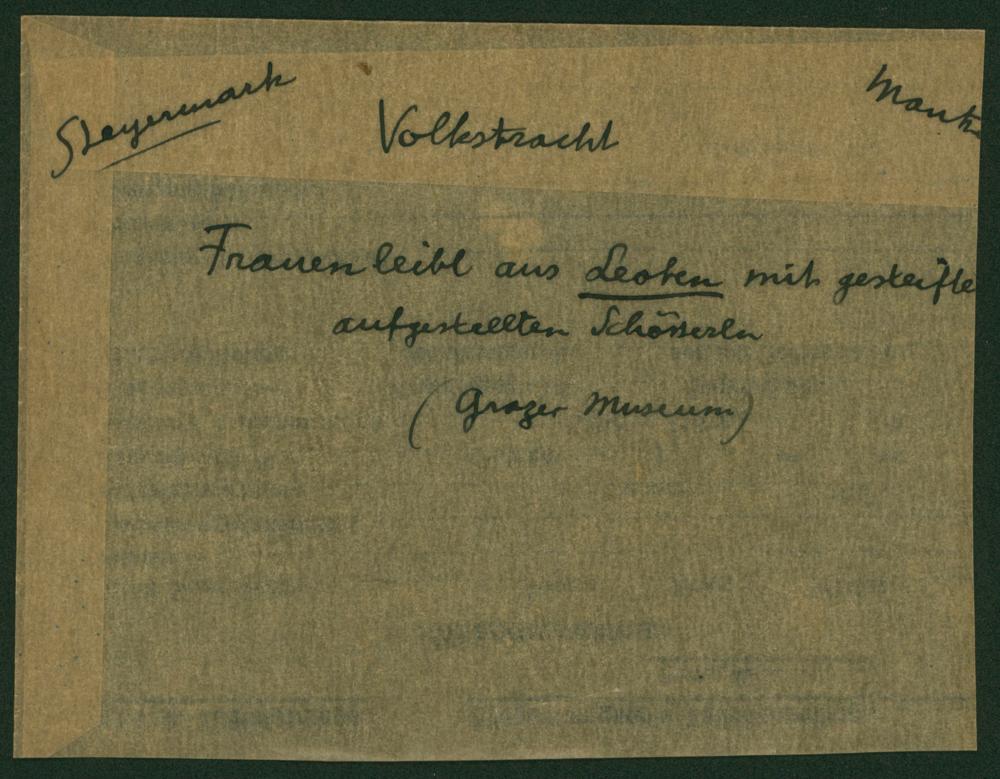 Steyermark
Volkstracht
Frauenleibl aus Leoben mit gesteifte
aufgestellten Schösserln
(Grazer Museum)